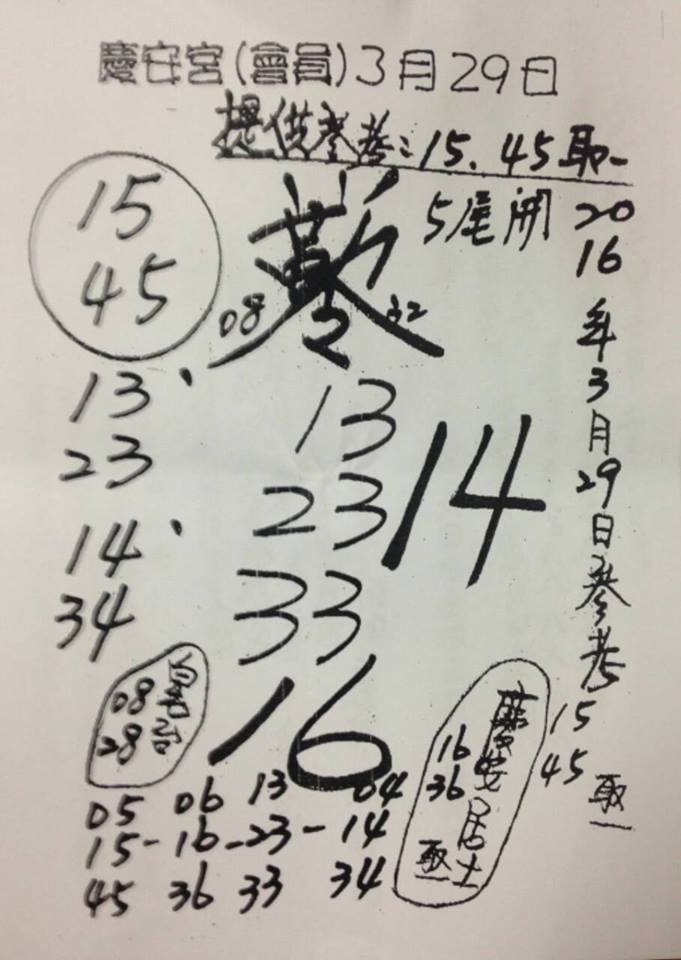 慶安宮(會員)3月29日
提供參考：15、45取一
5尾開
15
45
08
32
13、
23
14、
34
13
23
33
14
16
2016年3月29日參考
15
45
取一
08
28
16
36
慶安居士
取一
05 06 13 04
15-16-23-14
45 36 33 34